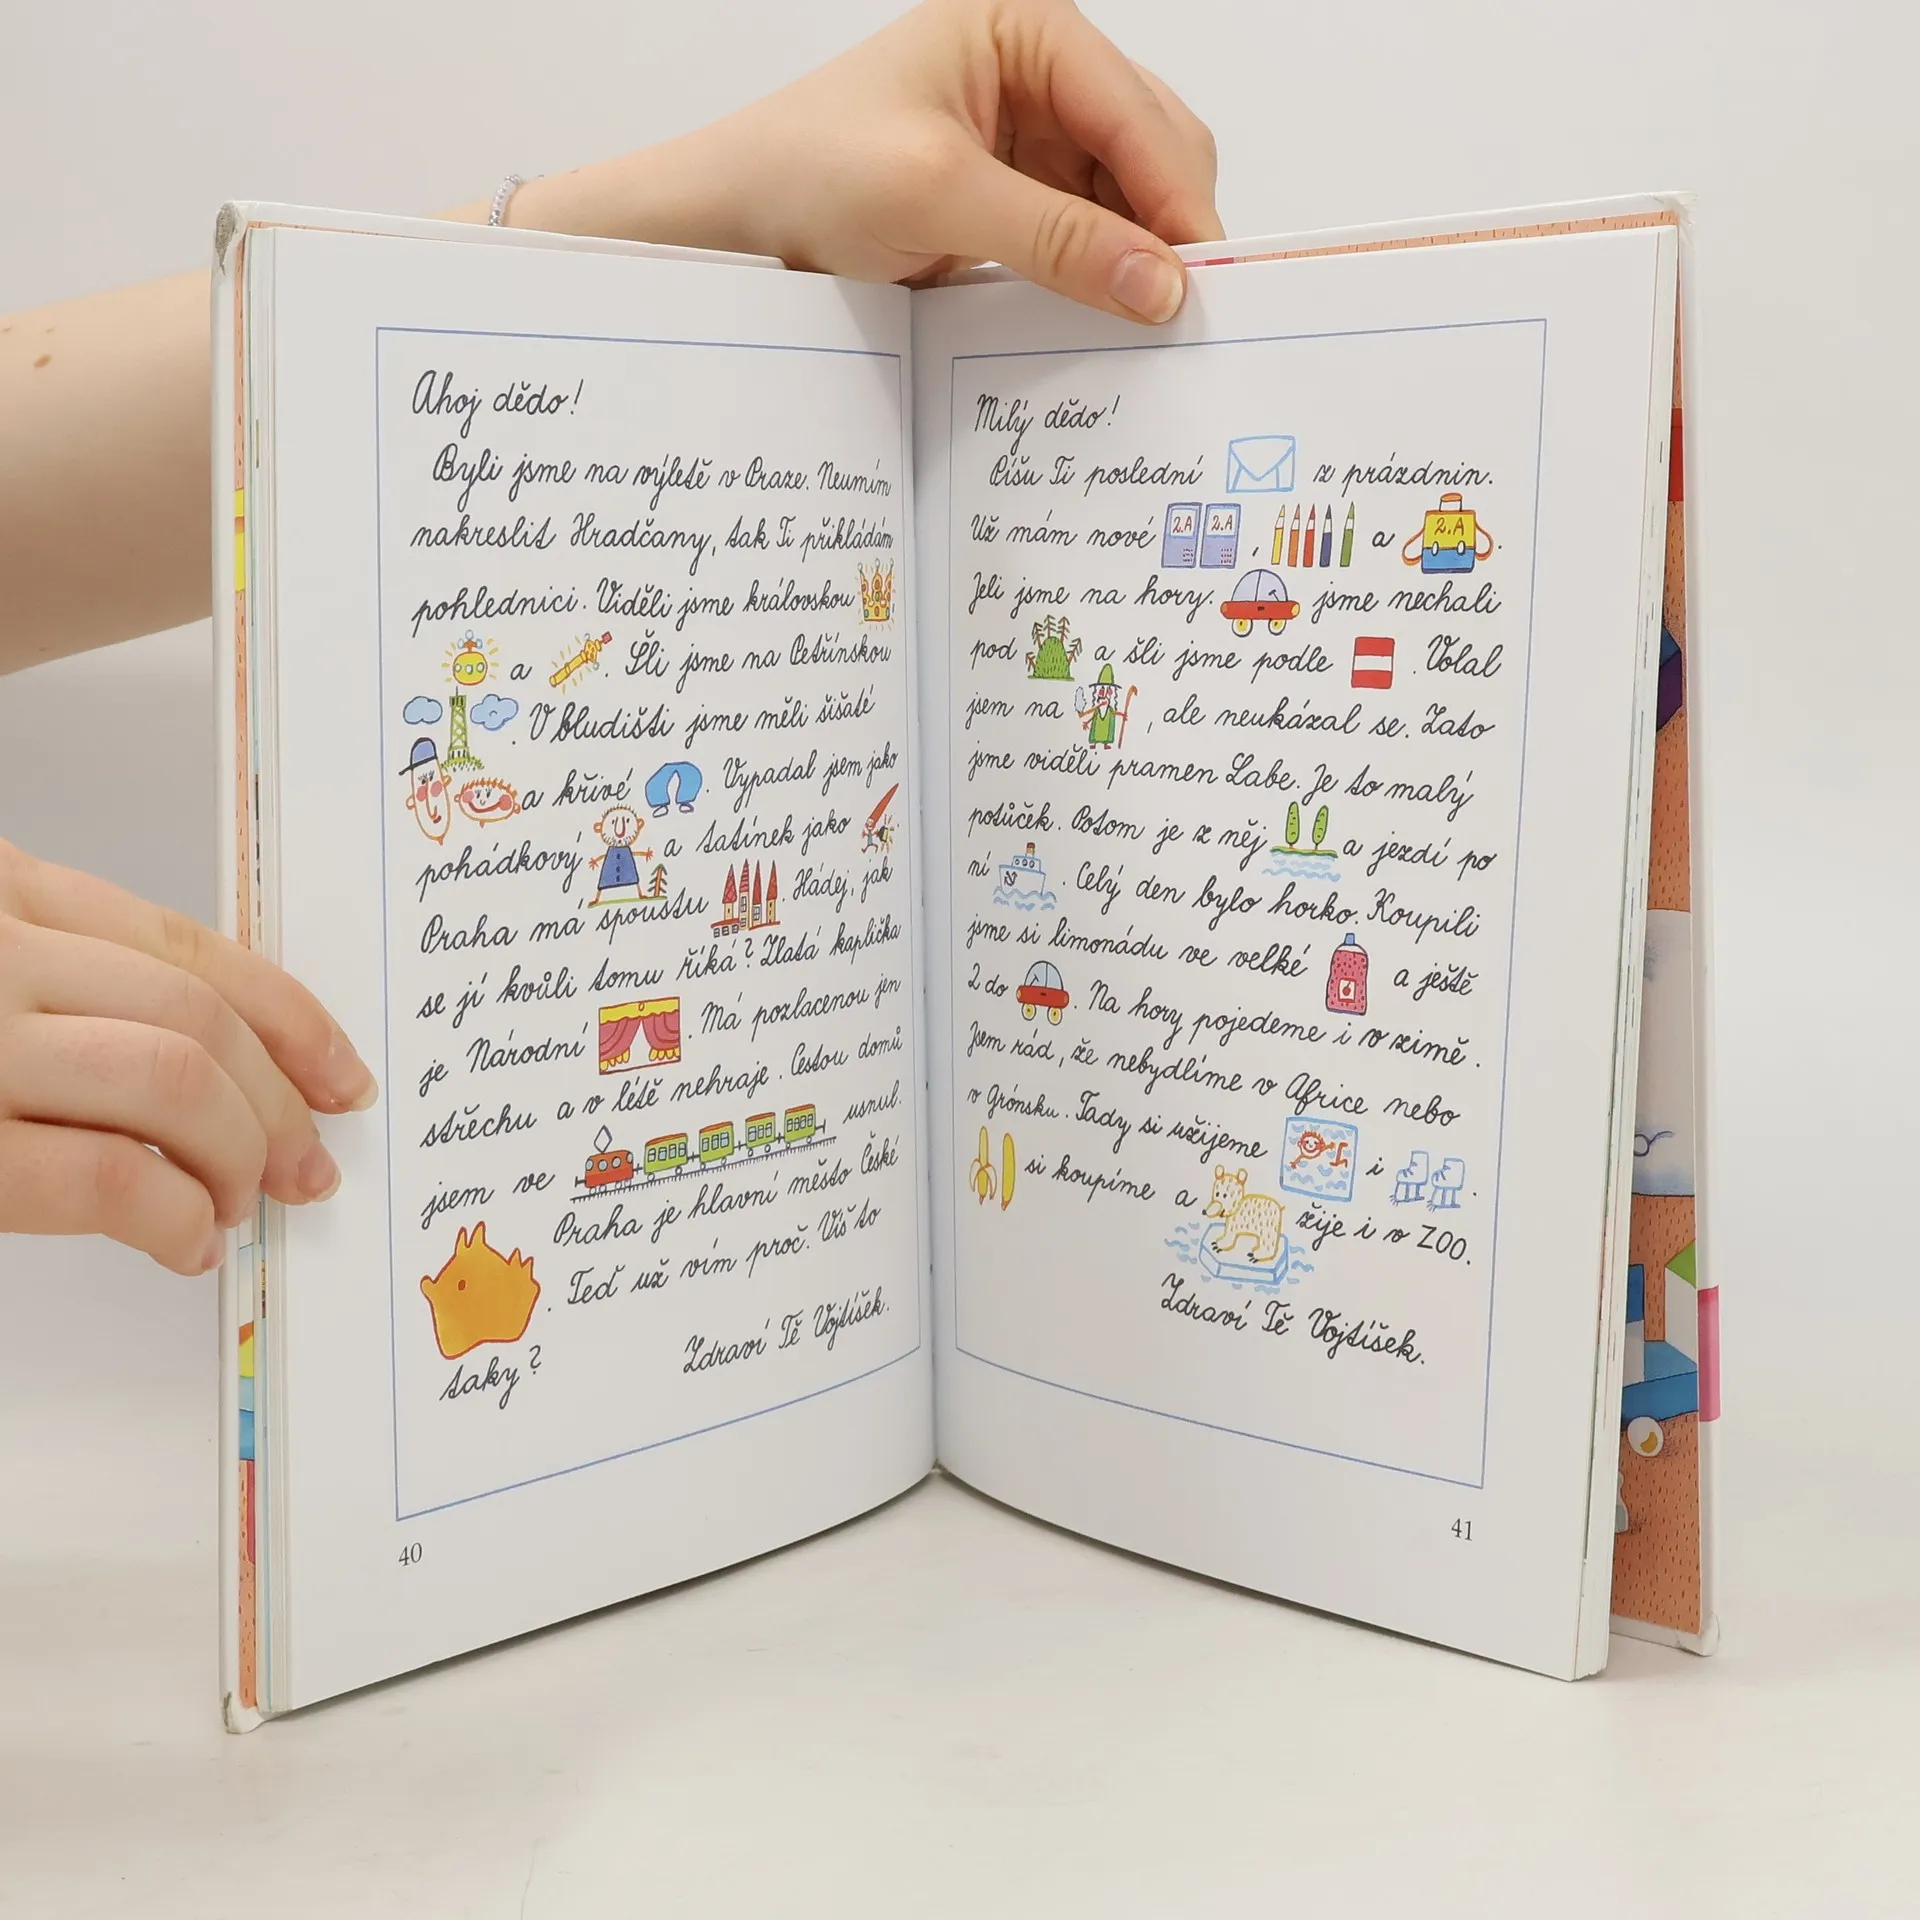 Ahoj dědo!
Byli jsme na výletě v Praze. Neumím
nakreslit Hradčany, tak Ti přikládám
pohlednici. Viděli jsme královskou
a . Šli jsme na Petřínskou
. V bludišti jsme měli šišaté
a křivé . Vypadal jsem jako
pohádkový a tatínek jako
Praha má spoustu . Hádej, jak
se jí kvůli tomu říká? Zlatá kaplička
je Národní . Má pozlacenou jen
střechu a v létě nehraje. Cestou domů
jsem ve usnul.
Praha je hlavní město České
. Teď už vím proč. Víš to
taky?
Zdraví Tě Vojtíšek.
40
Milý dědo!
Píšu Ti poslední z prázdnin.
Už mám nové 2.A 2.A , a 2.A .
Jeli jsme na hory. jsme nechali
pod a šli jsme podle . Volal
jsem na , ale neukázal se. Zato
jsme viděli pramen Labe. Je to malý
potůček. Potom je z něj a jezdí po
ní . Celý den bylo horko. Koupili
jsme si limonádu ve velké a ještě
2 do . Na hory pojedeme i v zimě.
Jsem rád, že nebydlíme v Africe nebo
v Grónsku. Tady si užijeme i .
si koupíme a žije i v ZOO.
Zdraví Tě Vojtíšek.
41